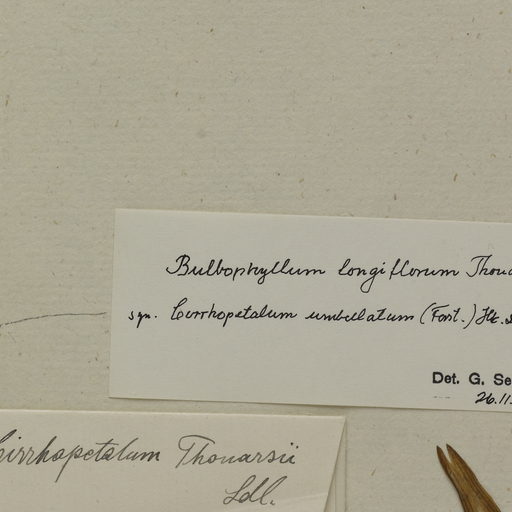 Bulbophyllum longiflorum Thou
syn. Cirrhopetalum umbellatum (Forst.) Hk.
Det. G. Se
26.11.
Cirrhopetalum Thouarsii
Ldl.